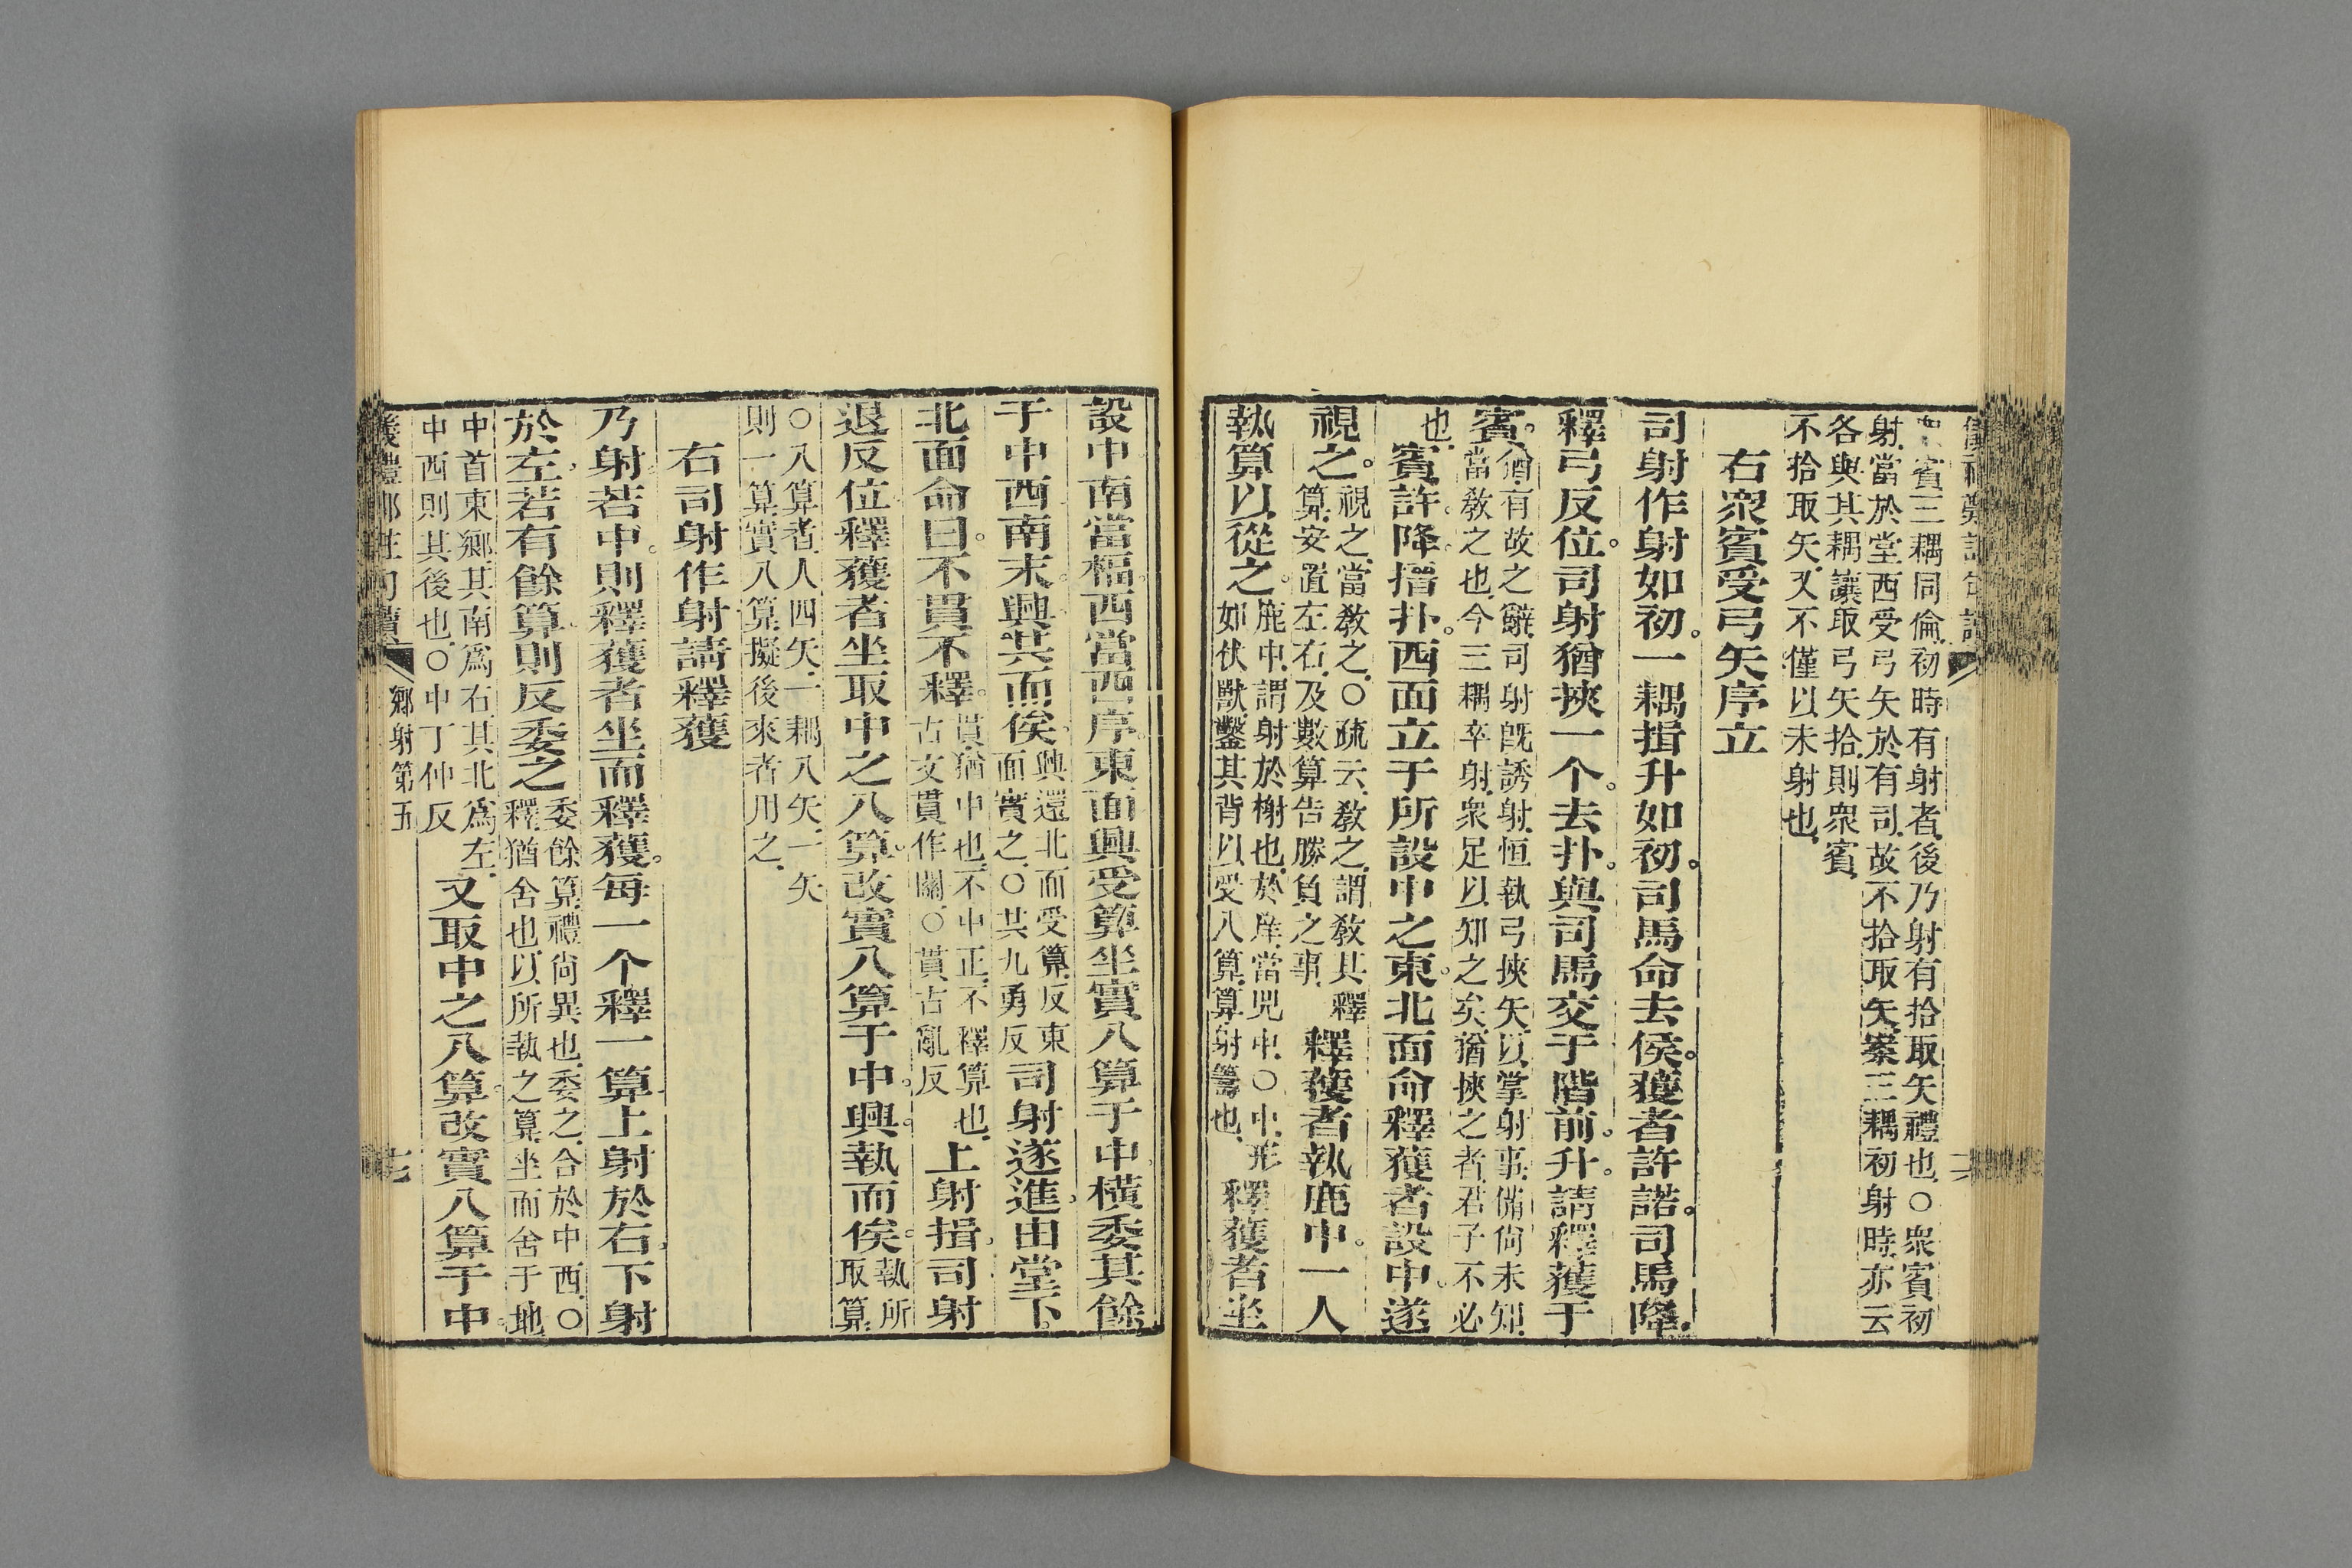 賓三耦同倫初時有射者後乃射有拾取矢禮也○衆賓初
射當於堂西受弓矢於有司故不拾取矢案三耦初射時亦云
各與其耦讓取弓矢拾則衆賓
不拾取矢又不僅以未射也
右衆賓受弓矢序立
司射作射如初一耦揖升如初司馬命去侯獲者許諾司馬降
釋弓反位司射猶挾一个去扑與司馬交于階前升請釋獲于
賓
猶有故之辭司射旣誘射恒執弓挾矢以掌射事備尚未知
當敎之也今三耦卒射衆足以知之矣猶挾之者君子不必
也
賓許降搢扑西面立于所設中之東北面命釋獲者設中遂
視之
視之當敎之○疏云敎之謂敎其釋
算安置左右及數算告勝負之事
釋獲者執鹿中一人
執算以從之
鹿中謂射於榭也於庠當兕中○中形
如伏獸鑿其背以受八算算射籌也
釋獲者坐
設中南當楅西當西序東面興受算坐實八算于中橫委其餘
于中西南末興共而俟
興還北面受算反東
面實之○共九勇反
司射遂進由堂下
北面命曰不貫不釋
貫猶中也不中正不釋算也
古文貫作關○貫古亂反
上射揖司射
退反位釋獲者坐取中之八算改實八算于中興執而俟
執所
取算
○八算者人四矢一耦八矢一矢
則一算實八算擬後來者用之
右司射作射請釋獲
乃射若中則釋獲者坐而釋獲每一个釋一算上射於右下射
於左若有餘算則反委之
委餘算禮尚異也委之合於中西○
釋猶舍也以所執之算坐而舍于地
中首東鄉其南爲右其北爲左
中西則其後也○中丁仲反
又取中之八算改實八算于中
儀禮鄭註句讀
鄉射第五